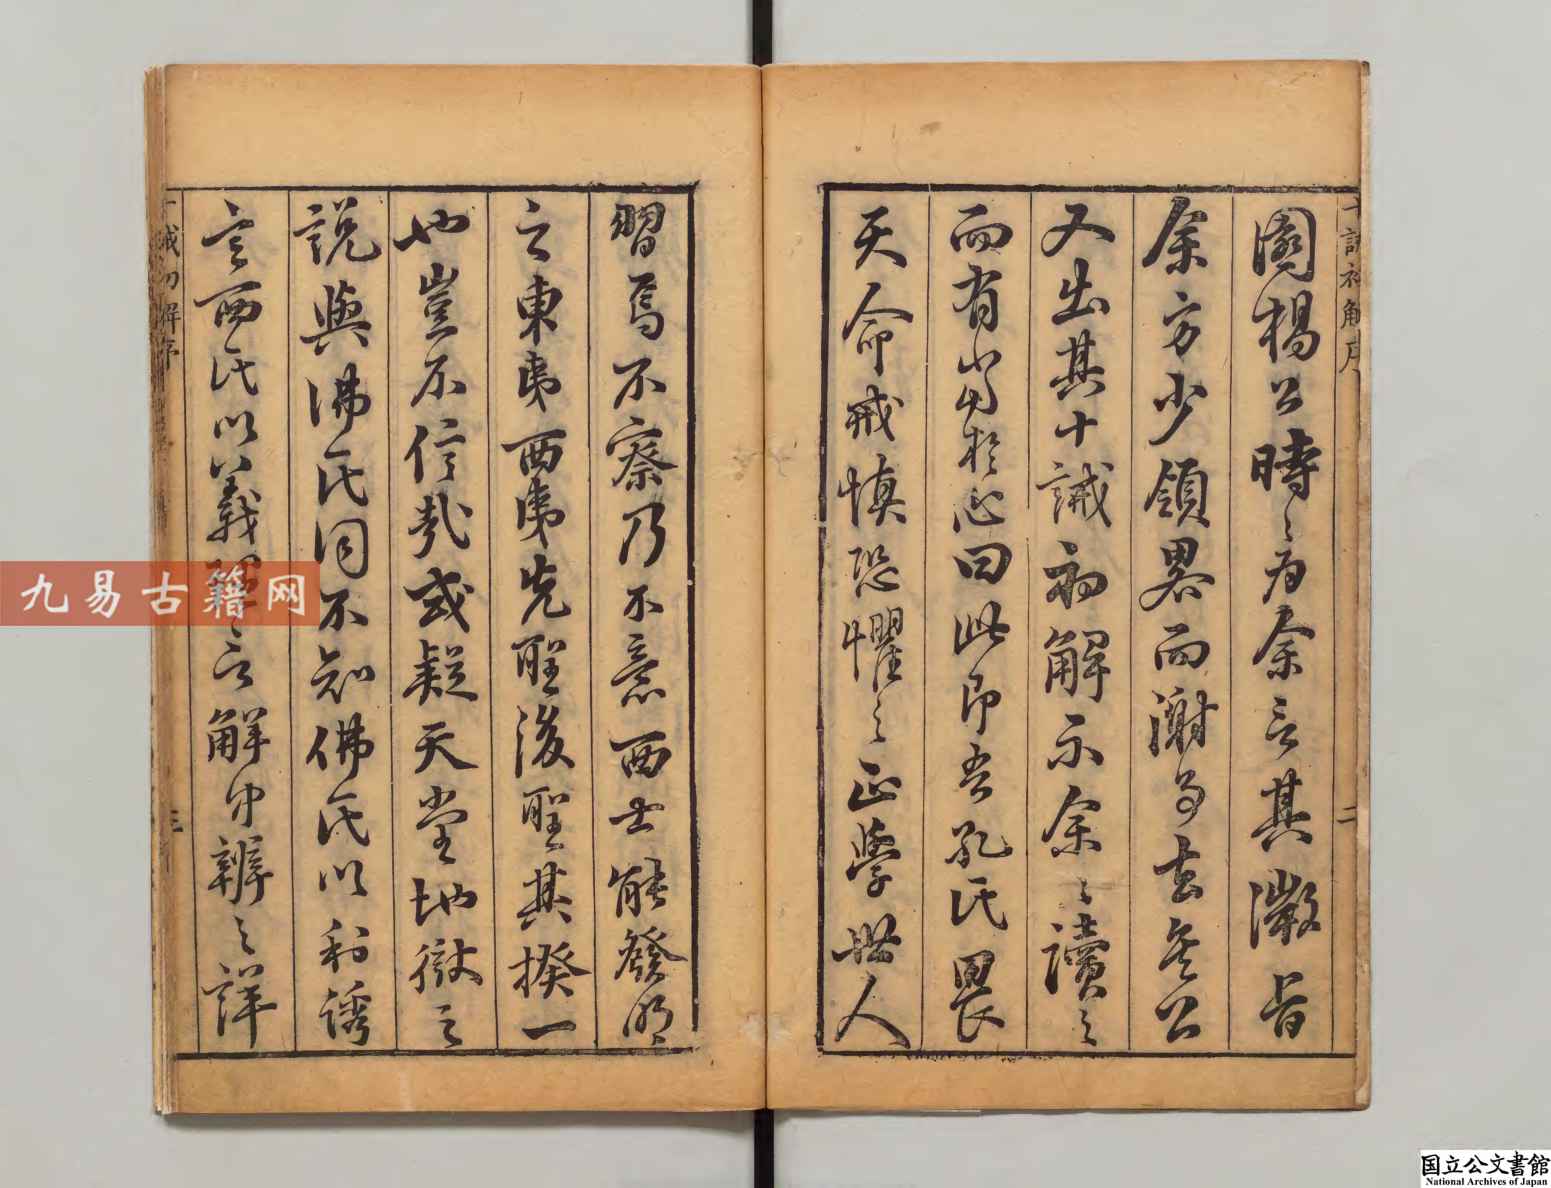 園楊公時〻為余言其微旨
余方少領畧而謝事去矣公
又出其十誡初解示余〻讀之
而有當於心曰此即吾孔氏畏
天命戒慎恐懼之正學世人
習焉不察乃不意西士能發明
之東夷西夷先聖後聖其揆一
也豈不信哉或疑天堂地獄之
說與佛氏同不知佛氏以利誘
言西氏以義理言解中辨之詳
十誡初解序
二
十誡初解序
三
九易古籍网
国立公文書館
National Archives of Japan